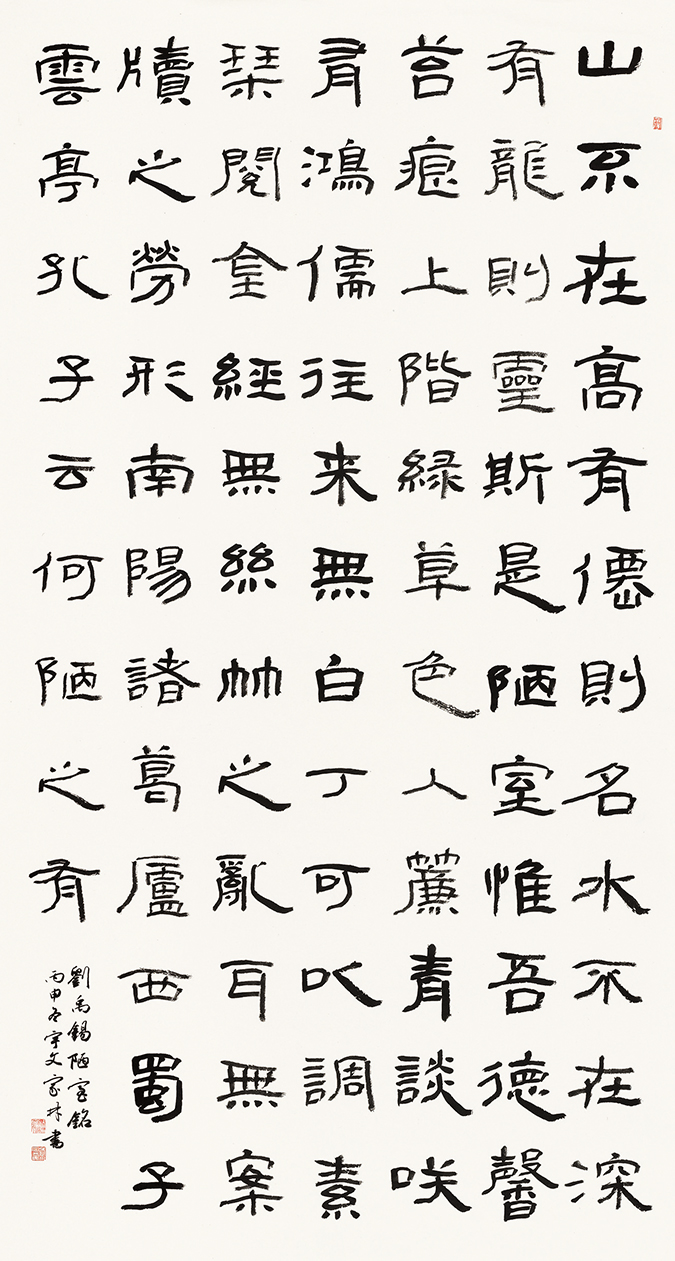 山不在高有僊則名水不在深
有龍則靈斯是陋室惟吾德馨
苔痕上階緑草色入簾青談咲
有鴻儒往来無白丁可以調素
琹閱金經無絲竹之亂耳無案
牘之勞形南陽諸葛廬西蜀子
雲亭孔子云何陋之有
劉禹錫陋室銘
丙申冬宇文家林書